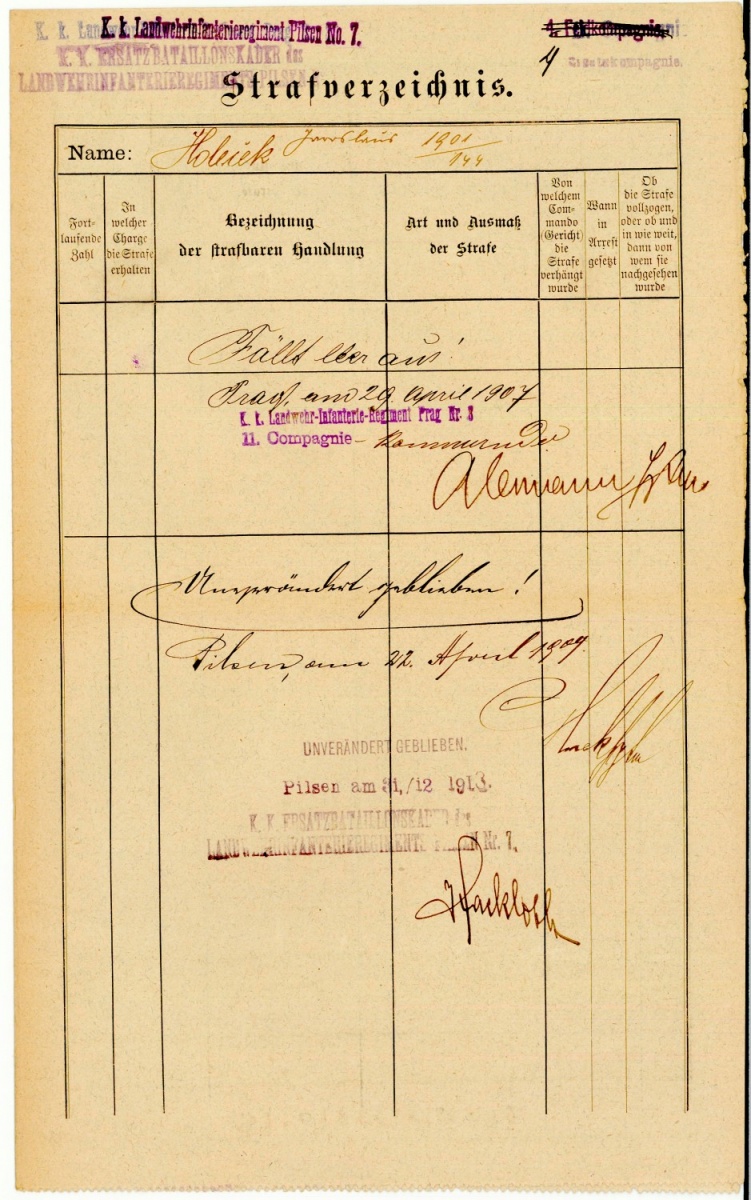 K. k. Landwehrinfanterieregiment Pilsen No. 7.
K. K. ERSATZBATAILLONSKADER des
LANDWEHRINFANTERIEREGIMENTS PILSEN
4. Feldkompagnie.
4
Ersatzkompagnie.
Strafverzeichnis.
Name: Holeick Jaroslaus 1901/144
Fort-
laufende
Zahl
In
welcher
Charge
die Strafe
erhalten
Bezeichnung
der strafbaren Handlung
Art und Ausmaß
der Strafe
Von
welchem
Com-
mando
(Gericht)
die
Strafe
verhängt
wurde
Wann
in
Arrest
gesetzt
Ob
die Strafe
vollzogen,
oder ob und
in wie weit,
dann von
wem sie
nachgesehen
wurde
Fällt leer aus!
Prag, am 29. April 1907
K. k. Landwehr-Infanterie-Regiment Prag Nr. 8
11. Compagnie-Kommando
Alemann
Unverändert geblieben!
Pilsen, am 22. April 1909
UNVERÄNDERT GEBLIEBEN.
Pilsen am 31./12 1913.
K. K. ERSATZBATAILLONSKADER des
LANDWEHRINFANTERIEREGIMENTS PILSEN Nr. 7.